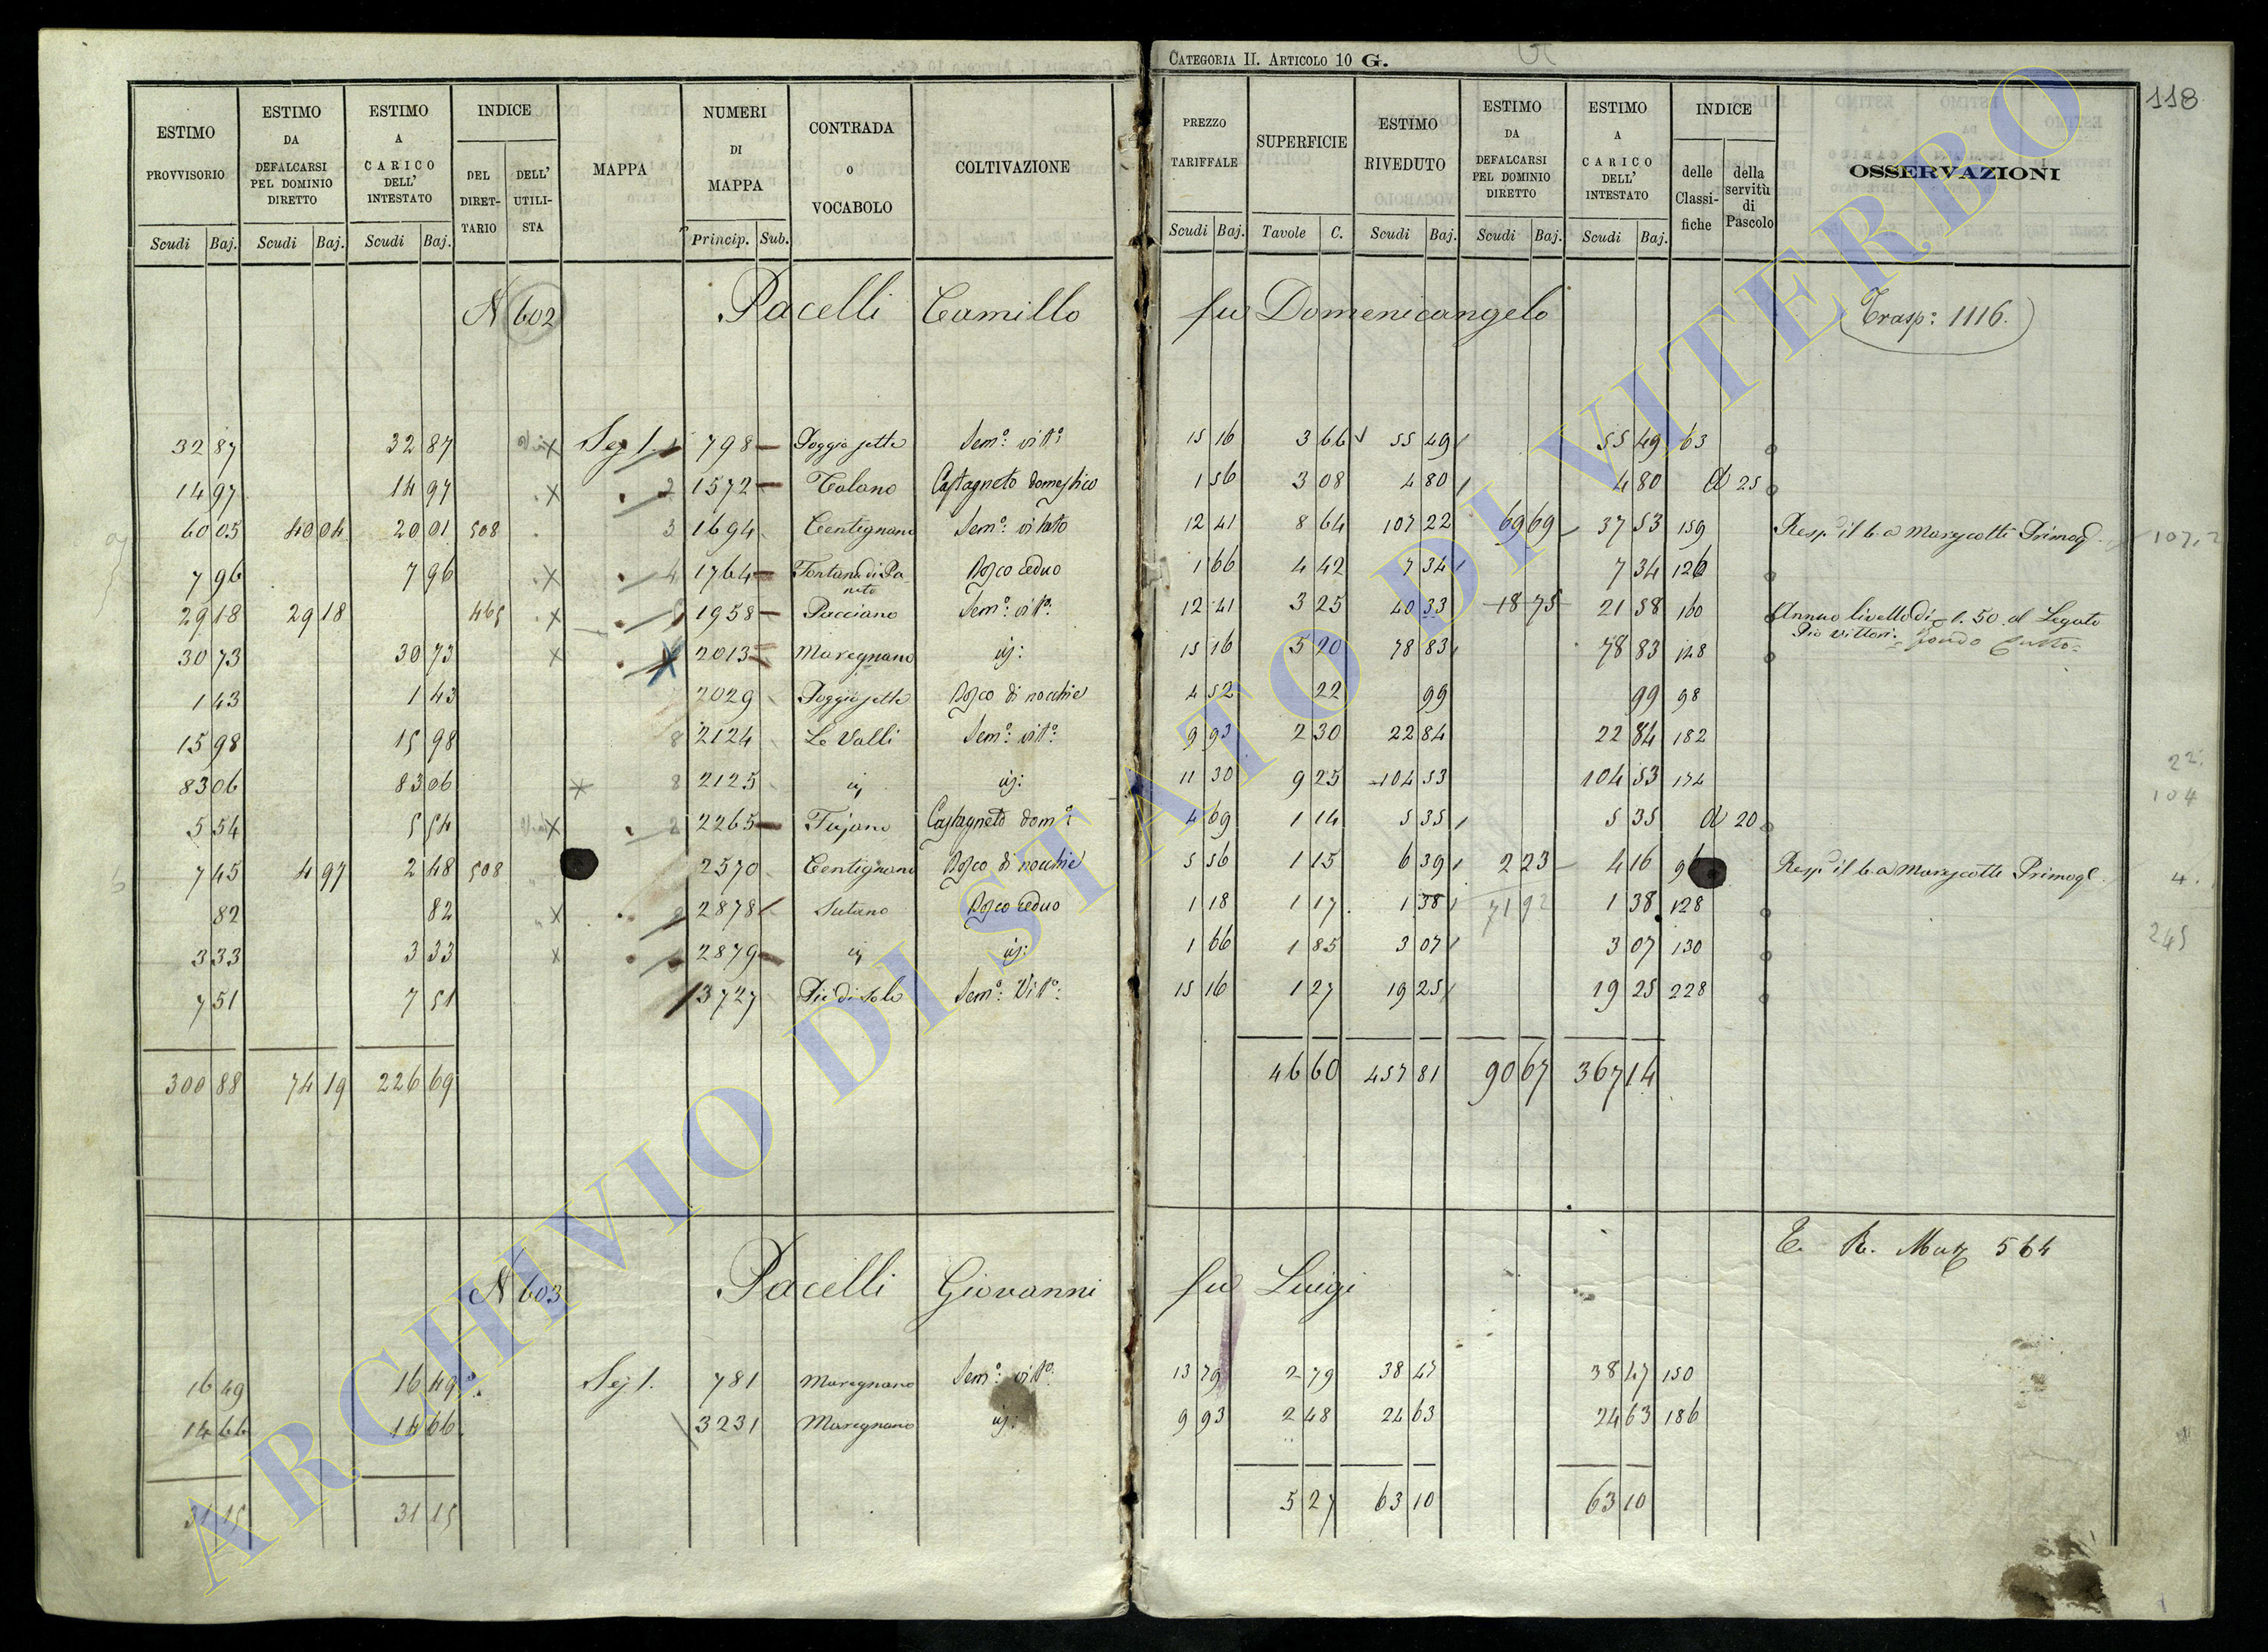 CATEGORIA II. ARTICOLO 10 G.
118
ESTIMO PROVVISORIO Scudi Baj.
ESTIMO DA DEFALCARSI PEL DOMINIO DIRETTO Scudi Baj.
ESTIMO A CARICO DELL' INTESTATO Scudi Baj.
INDICE DEL DIRETTARIO DELL' UTILISTA
MAPPA
NUMERI DI MAPPA Princip. Sub.
CONTRADA O VOCABOLO
COLTIVAZIONE
PREZZO TARIFFALE Scudi Baj.
SUPERFICIE Tavole C.
ESTIMO RIVEDUTO Scudi Baj.
ESTIMO DA DEFALCARSI PEL DOMINIO DIRETTO Scudi Baj.
ESTIMO A CARICO DELL' INTESTATO Scudi Baj.
INDICE delle Classifiche della servitù di Pascolo
OSSERVAZIONI
N 602 Pacelli Camillo fu Domenicangelo Trasp: 1116.
32 87 32 87 Sez 1. 1 798 Poggio sette Sem°: vit°: 15 16 3 66 55 49 55 49 63
14 97 14 97 2 1572 Talano Castagneto domestico 1 56 3 08 4 80 4 80 25
60 05 40 04 20 01 508 3 1694 Centignano Sem°: vitato 12 41 8 64 107 22 69 69 37 53 159 Resp il 6.a Marescotti
7 96 7 96 4 1764 Fontana di Bosco ceduo 1 66 4 42 7 34 7 34 126
29 18 29 18 465 1958 Pacciano Sem°: vit°: 12 41 3 25 40 33 18 75 21 58 160 Annuo livello di 1.50 al Legato
Pio Vittori
30 73 30 73 2013 Maregnano id: 15 16 5 20 78 83 78 83 128
1 43 1 43 2029 Poggio sette Bosco di nocchie 4 52 22 99 99 98
15 98 15 98 8 2124 Le Valli Sem°: vit°: 9 93 2 30 22 84 22 84 182
83 06 83 06 8 2125 id id: 11 30 9 25 104 53 104 53 174
5 54 5 54 2 2265 Fujano Castagneto dom°: 4 69 1 14 5 35 5 35 20
7 45 4 97 2 48 508 2570 Centignano Bosco di nocchie 5 56 1 15 6 39 2 23 4 16 Resp il 6.a Marescotti
82 82 2878 Sutano Bosco ceduo 1 18 1 17 1 38 71 92 1 38 128
3 33 3 33 2879 id id: 1 66 1 85 3 07 3 07 130
7 51 7 51 3727 Piè di Sole Sem°: Vit°: 15 16 1 27 19 25 19 25 228
300 88 74 19 226 69 46 60 457 81 90 67 367 14
104
245
E. R. 564
N 603 Pacelli Giovanni fu Luigi
16 49 16 49 Sez 1. 781 Maregnano Sem°: vit°: 13 79 2 79 38 47 38 47 150
14 66 14 66 3231 Maregnano id: 9 93 2 48 24 63 24 63 186
31 15 31 15 5 27 63 10 63 10
ARCHIVIO DI STATO DI VITERBO